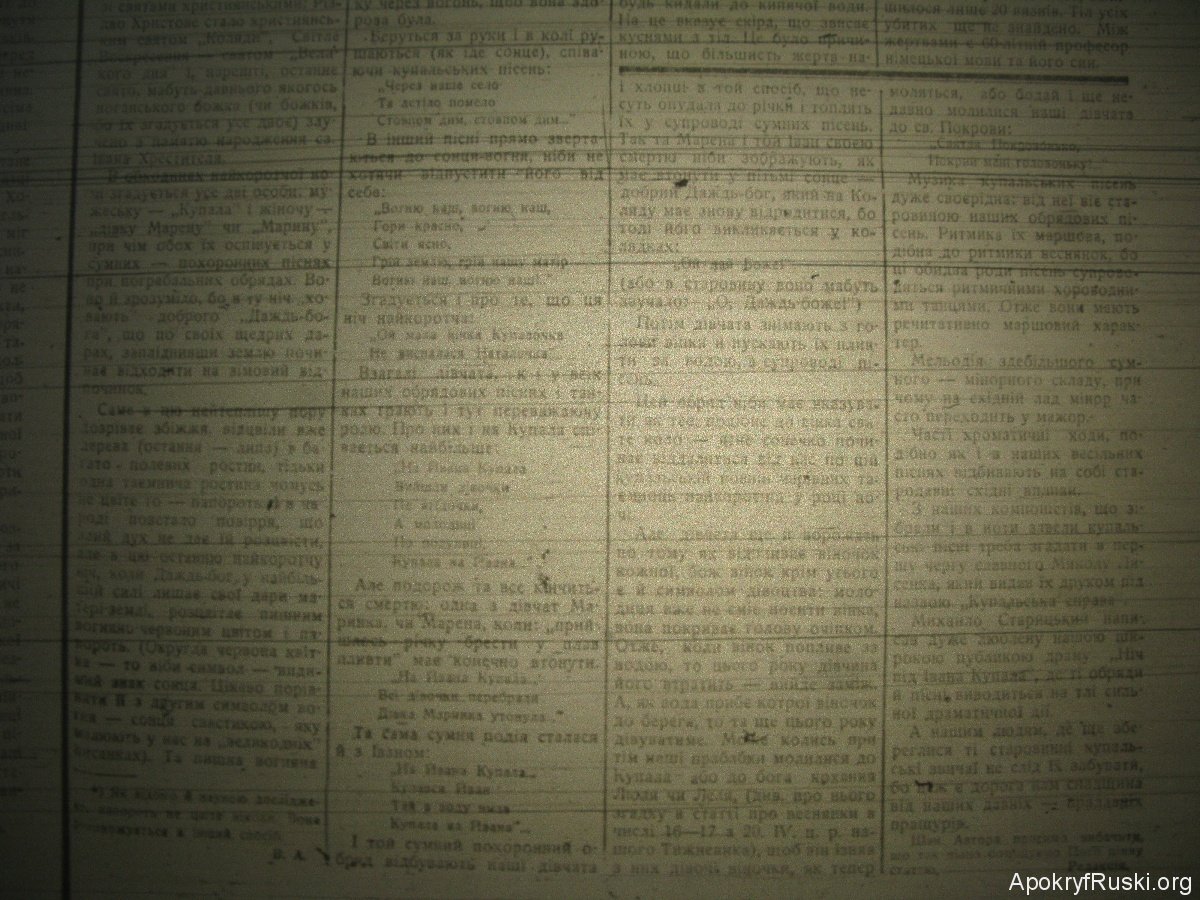 зі святами християнськими. Різ-
дво Христове стало християнсь-
ким святом „Коляди“, Світле
Воскресення — святом „Вели-
кого дня“ і, нарешті, останнє
свято, мабуть давнього якогось
поганського божка (чи божків,
бо їх згадується усе двоє) злу-
чено з пам'яттю народження св.
Івана Хрестителя.
В обходинах найкоротчої но-
чи згадується усе дві особи: му-
жеську — „Купала“ і жіночу —
„дівку Марену“ чи „Марину“,
при чім обох їх оспівується у
сумних — похоронних піснях
при погребальних обрядах. Во-
но й зрозуміло, бо в ту ніч „хо-
вають“ доброго „Даждь-бо-
га“, що по своїх щедрих да-
рах, запліднивши землю почи-
нає відходити на зімовий від-
починок.
Саме в цю найтеплішу пору
дозріває збіжжя, відцвіли вже
дерева (остання — липа) в ба-
гато полевих ростин, тільки
одна таємнича ростина чомусь
не цвіте то — папороть. І в на-
роді повстало повірря, що
злий дух не дає їй розцвісти,
але в цю останню найкоротчу
ніч, коли Даждь-бог, у найбіль-
шій силі лишає свої дари ма-
тері-землі, розцвітає пишним
вогняно червоним цвітом і па-
пороть. (Округла червона квіт-
ка — то ніби символ — види-
мий знак сонця. Цікаво порів-
няти її з другим символом во-
гня — сонця свастикою, яку
малюють у нас на „великодніх“
писанках). Та пишна вогняна
В. А.
ку через вогонь, щоб вона здо-
рова була.
Беруться за руки і в колі ру-
шаються (як іде сонце), співа-
ючи купальських пісень:
„Через наше село
Та летіло помело
Стовпом дим, стовпом дим...“
В інший пісні прямо зверта-
ються до сонця-вогня, ніби не
хотячи відпустити його від
себе:
„Вогню наш, вогню наш,
Гори красно,
Світи ясно,
Грій землю, грій нашу матір
Вогню наш, вогню наш!“
Згадується і про те, що ця
ніч найкоротча:
„Ой мала нічка Купалочка
Не виспалася Наталочка“..
Взагалі дівчата, як і у всіх
наших обрядових піснях і тан-
ках грають і тут переважаючу
ролю. Про них і на Купала спі-
вається найбільше:
„На Йвана Купала
Вийшли дівочки
По квіточки,
А молодиці
По полуниці
Купала на Йвана..“
Але подорож та все кінчить-
ся смертю: одна з дівчат Ма-
ринка, чи Марена, коли: „прий-
шлось річку брести у плав
пливти“ має конечно втонути.
„На Йвана Купала..
Всі дівочки перебрели
Дівка Маринка утонула..“
Та сама сумня подія сталася
й з Іваном:
„На Йвана Купала..
Купався Йван
Та в воду впав
Купала на Йвана“..
І той сумний похоронний о-
бряд відбувають наші дівчата
будь кидали до кипячої води.
На це вказує скірд, що звисає
куснями з тіл. Це було причи-
ною, що більшість жертв на-
і хлопці в той спосіб, що не-
суть опудала до річки і топлять
їх у супроводі сумних пісень.
Так та Марена і той Іван своєю
смертю ніби зображують, як
має втонути у пітьмі сонце —
добрий Даждь-бог, який на Ко-
ляду має знову відродитися, бо
тоді його викликається у ко-
лядках:
„Ой дай Боже!“
(або в старовину воно мабуть
звучало: „О, Даждь-боже!“)
Потім дівчата знімають з го-
лови вінки й пускають їх плив-
ти за водою, в супроводі пі-
сень.
Цей обряд ніби має вказува-
ти як теє, подібне до вінка свя-
те коло — ясне сонечко почи-
нає віддалятися від нас по цій
купальській повній чарівних та-
ємниць найкоротчій у році но-
чі.
Але дівчата ще й ворожать
по тому як відпливає віночок
кожної, бож вінок крім усього
є й символом дівоцтва: моло-
диця вже не сміє носити вінка,
вона покриває голову очіпком.
Отже, коли вінок попливе за
водою, то цього року дівчина
його втратить — вийде заміж.
А, як вода прибє котрої віночок
до берега, то та ще цього року
дівуватиме. Може колись при
тім наші прабабки молилися до
Купала або до бога кохання
Люля чи Леля, (див. про нього
згадку в статті про веснянки в
числі 16—17 з 20. IV. ц. р. на-
шого Тижневика), щоб він ізняв
з них дівочі віночки, як тепер
шилося лише 20 вязнів. Тіл усіх
убитих ще не знайдено. Між
жертвами є 60-літній професор
німецької мови та його син.
моляться, або бодай і ще не-
давно молилися наші дівчата
до св. Покрови:
„Святая Покровонько,
Покрий мою головоньку!“
Музика купальських пісень
дуже своєрідна: від неї віє ста-
ровиною наших обрядових пі-
сень. Ритмика їх маршова, по-
дібна до ритмики веснянок, бо
ці обидва роди пісень супрово-
дяться ритмичними хороводни-
ми танцями. Отже вони мають
речитативно маршовий харак-
тер.
Мельодія здебільшого сум-
ного — мінорного складу, при
чому на східній лад мінор ча-
сто переходить у мажор.
Часті хроматичні ходи, по-
дібно як і в наших весільних
піснях відбивають на собі ста-
родавні східні впливи.
З наших компоністів, що зі-
брали і в ноти завели купаль-
ські пісні треба згадати в пер-
шу чергу славного Миколу Ли-
сенка, який видав їх друком під
назвою „Купальська справа“.
Михайло Старицький напи-
сав дуже люблену нашою ши-
рокою публикою драму „Ніч
під Івана Купала“, де ті обряди
й пісні виводиться на тлі силь-
ної драматичної дії.
А нашим людям, де ще збе-
реглися ті старовинні купаль-
ські звичаї не слід їх забувати,
бо це ж є дорога нам спадщина
від наших давніх — прадавніх
пращурів.
статтю. Редакція.
ApokryfRuski.org